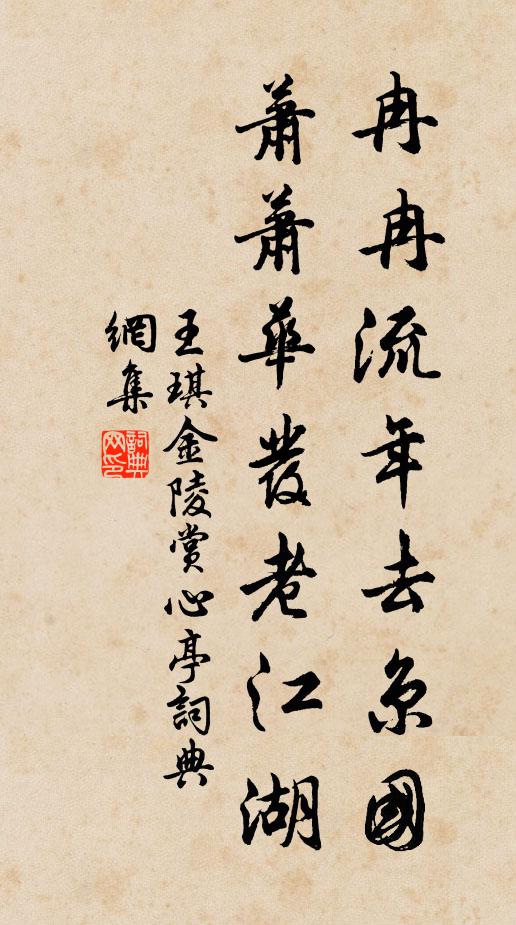 冉冉流年去京國
蕭蕭華髮老江湖
王琪金陵賞心亭詞典
網集
詞典
网印